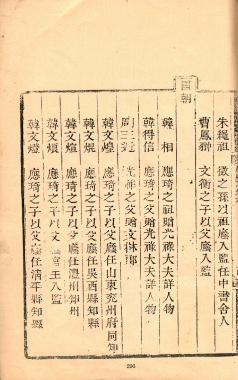 朱繩祖 徵之孫以祖廕入監任中書舍人
曹鳳 文衡之子以父廕入監
國朝
韓相 應琦之祖贈光祿大夫詳人物
韓得信 應琦之父贈光祿大夫詳人物
周三 祥之父贈文林郎
韓文煌 應琦之子以父廕任山東兗州府同知
韓文焜 應琦之子以父廕任吳西縣知縣
韓文煊 應琦之子以父廕任澧州知州
韓文 應琦之子以父 官 入監
韓文燈 應琦之子以父廕任清平縣知縣
290